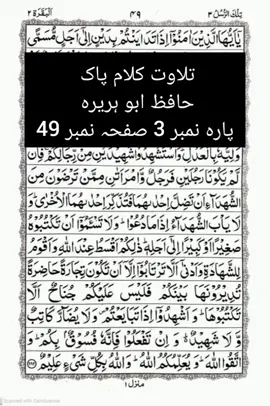 تِلْكَ الرُّسُلُ ٣ ٤٩ اَلْبَقَرَة ٢
يٰۤاَيُّهَا الَّذِيْنَ اٰمَنُوْۤا اِذَا تَدَايَنْتُمْ بِدَيْنٍ اِلٰۤى اَجَلٍ مُّسَمًّى
تلاوت کلام پاک
حافظ ابو ہریرہ
پارہ نمبر 3 صفحہ نمبر 49
وَلِيُّهٗ بِالْعَدْلِ وَاسْتَشْهِدُوْا شَهِيْدَيْنِ مِنْ رِّجَالِكُمْ فَاِنْ
لَّمْ يَكُوْنَا رَجُلَيْنِ فَرَجُلٌ وَّامْرَاَتٰنِ مِمَّنْ تَرْضَوْنَ مِنَ
الشُّهَدَآءِ اَنْ تَضِلَّ اِحْدٰىهُمَا فَتُذَكِّرَ اِحْدٰىهُمَا الْاُخْرٰى وَ
لَا يَاْبَ الشُّهَدَآءُ اِذَا مَا دُعُوْا وَلَا تَسْـَٔمُوْۤا اَنْ تَكْتُبُوْهُ
صَغِيْرًا اَوْ كَبِيْرًا اِلٰۤى اَجَلِهٖ ذٰلِكُمْ اَقْسَطُ عِنْدَ اللّٰهِ وَاَقْوَمُ
لِلشَّهَادَةِ وَاَدْنٰۤى اَلَّا تَرْتَابُوْۤا اِلَّاۤ اَنْ تَكُوْنَ تِجَارَةً حَاضِرَةً
تُدِيْرُوْنَهَا بَيْنَكُمْ فَلَيْسَ عَلَيْكُمْ جُنَاحٌ اَلَّا
تَكْتُبُوْهَا وَاَشْهِدُوْۤا اِذَا تَبَايَعْتُمْ وَلَا يُضَآرَّ كَاتِبٌ
وَّلَا شَهِيْدٌ وَاِنْ تَفْعَلُوْا فَاِنَّهٗ فُسُوْقٌ بِكُمْ وَ
اتَّقُوا اللّٰهَ وَيُعَلِّمُكُمُ اللّٰهُ وَاللّٰهُ بِكُلِّ شَيْءٍ عَلِيْمٌ
منزل ١
Scanned with CamScanner